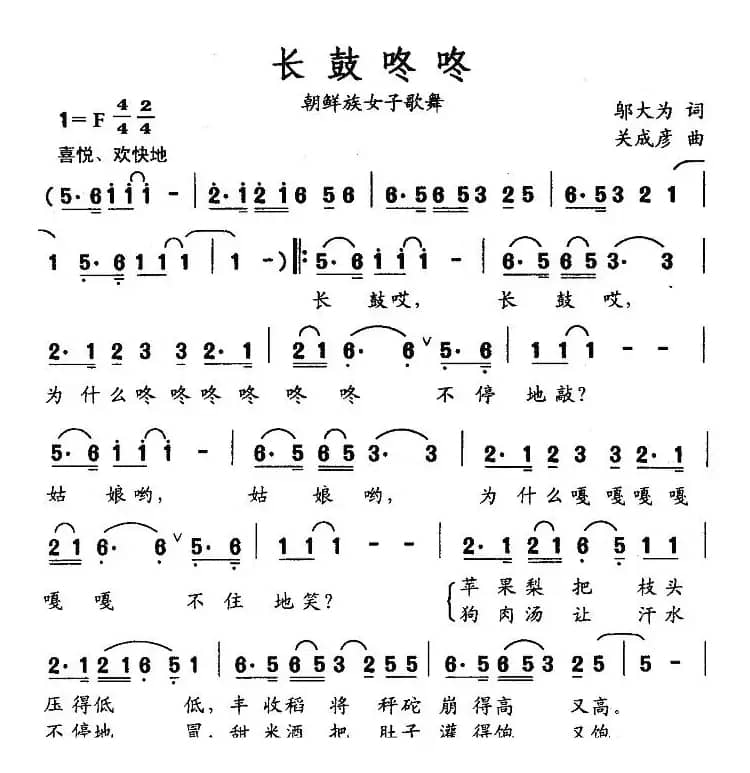 长鼓咚咚
朝鲜族女子歌舞
1=F 4/4 2/4
邬大为 词
关成彦 曲
喜悦、欢快地
(5·6 i i i - | 2·i 2 i 6 5 6 | 6·5 6 5 3 2 5 | 6·5 3 2 1 |
1 5·6 1 1 1 | 1 -) ‖: 5·6 i i i - | 6·5 6 5 3· 3 |
长 鼓哎， 长 鼓 哎，
2·1 2 3 3 2·1 | 2 1 6· 6 ∨ 5·6 | 1 1 1 - - |
为什么咚咚咚咚 咚 咚 不停地敲？
5·6 i i i - | 6·5 6 5 3· 3 | 2·1 2 3 3 2·1 |
姑 娘哟， 姑 娘 哟， 为什么嘎嘎嘎嘎
2 1 6· 6 ∨ 5·6 | 1 1 1 - - | 2·1 2 1 6 5 1 |
嘎 嘎 不住地笑？ 苹果梨把 枝头
狗肉汤让 汗水
2·1 2 1 6 5 1 | 6·5 6 5 3 2 5 5 | 6·5 6 5 3 2 5 | 5 - |
压得低 低，丰收稻将 秤砣崩得高 又高。
不停地 冒，甜米酒把 肚子灌得饱 又饱